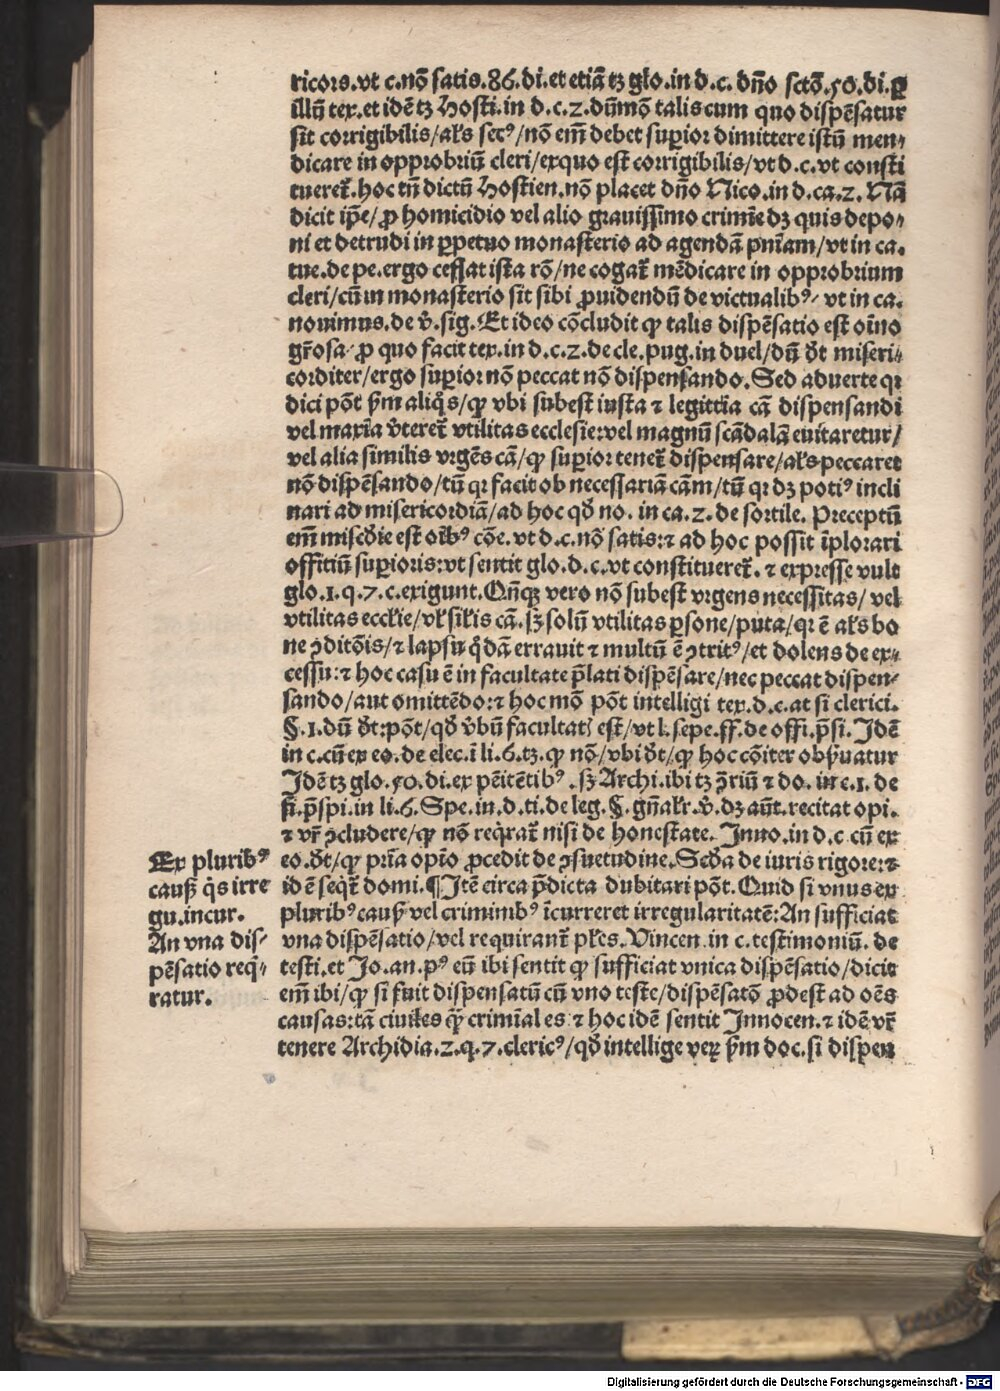 ricors.vt c.nõ satis.86.di.et etiã tꝫ glo.in d.c. dño sctõ.50.di.ꝑ
illũ tex.et idẽ tꝫ Hosti.in d.c.2.dũmõ talis cum quo dispẽsatur
sit corrigibilis/al̃s sec⁹/nõ em̃ debet suꝑior dimittere istũ men⸗
dicare in opprobriũ cleri/exquo est corrigibilis/vt d.c.vt consti
tueret̃.hoc tñ dictũ Hostien.nõ placet dño Nico.in d.ca.2. Nã
dicit ip̃e/ꝓ homicidio vel alio grauissimo crimĩe dꝫ quis depo⸗
ni et detrudi in ꝑpetuo monasterio ad agendã pñiam/vt in ca.
tue.de pe.ergo cessat ista rõ/ne cogat̃ mẽdicare in opprobrium
cleri/cũ in monasterio sit sibi ꝓuidendũ de victualib⁹/ vt in ca.
nouimus.de ṽ.sig. Et ideo cõcludit ꝙ talis dispẽsatio est oĩno
gr̃osa/ꝓ quo facit tex.in d.c.2.de cle.pug.in duel/dũ d̃t miseri⸗
corditer/ergo suꝑior nõ peccat nõ dispensando. Sed aduerte qꝛ
dici põt ẜm aliq̃s/ꝙ vbi subest iusta ⁊ legittĩa cã dispensandi
vel maxĩa ṽteret̃ vtilitas ecclesie:vel magnũ scãdalũ euitaretur/
vel alia similis vrgẽs cã/ꝙ suꝑior tenet̃ dispensare/al̃s peccaret
nõ dispẽsando/tũ qꝛ facit ob necessariã cãm/tũ qꝛ dꝫ poti⁹ incli
nari ad misericordiã/ad hoc qd̃ no. in ca.2. de sortile. Preceptũ
em̃ miscd̃ie est oĩb⁹ cõe.vt d.c.nõ satis:⁊ ad hoc possit ĩplorari
offitiũ suꝑioris:vt sentit glo.d.c.vt constitueret̃. ⁊ expresse vult
glo.1.q.7.c.exigunt. Qñqꝫ vero nõ subest vrgens necessitas/ vel
vtilitas eccl̃ie/vl̃ sil̃is cã. sꝫ solũ vtilitas ꝑsone/puta/qꝛ ẽ al̃s bo
ne ꝯditõis/⁊ lapsu q̃dã errauit ⁊ multũ ẽ ꝯtrit⁹/et dolens de ex⸗
cessu:⁊ hoc casu ẽ in facultate p̃lati dispẽsare/nec peccat dispen⸗
sando/aut omittẽdo:⁊ hoc mõ põt intelligi tex.d.c.at si clerici.
§.1.dũ d̃t:põt/qd̃ ṽbũ facultatis est/vt l.sepe.ff.de offi.p̃si. Idẽ
in c.cũ ex eo.de elec.ĩ li.6.tꝫ.ꝙ nõ/vbi d̃t/ꝙ hoc cõiter obẜuatur
Idẽ tꝫ glo.50.di.ex pẽitẽtib⁹.sꝫ Archi.ibi tꝫ ꝯ̃riũ ⁊ do. in c.1. de
fi.p̃spi.in li.6.Spe.in.d.ti.de leg.§.gñal̃r.ṽ.dꝫ aũt.recitat opi.
⁊ vr̃ ꝯcludere/ꝙ nõ req̃rat̃ nisi de honestate. Inno.in d.c cũ ex
eo.d̃t/ꝙ pr̃ia opĩo ꝓcedit de ꝯsuetudine.Scd̃a de iuris rigore:⁊
id ẽ seqt̃ domi.¶Itẽ circa p̃dicta dubitari põt.Quid si vnus ex
plurib⁹ causis vel criminib⁹ ĩcurreret irregularitatẽ:An sufficiat
vna dispẽsatio/vel requirant̃ pl̃es. Vincen.in c.testimoniũ. de
testi.et Jo.an.p⁹ eũ ibi sentit ꝙ sufficiat vnica dispẽsatio/dicit
em̃ ibi/ꝙ si fuit dispensatũ cũ vno teste/dispẽsatõ ꝓdest ad oẽs
causas:tã ciuiles q̃ꝫ crimĩales ⁊ hoc idẽ sentit Innocen.⁊ idẽ vr̃
tenere Archidia.2.q.7.cleric⁹/qd̃ intellige veꝝ ẜm doc.si dispen
Ex plurib⁹
causis q̃s irre
gu.incur.
An vna dis⸗
pẽsatio req̃⸗
ratur.
Digitalisierung gefördert durch die Deutsche Forschungsgemeinschaft - DFG